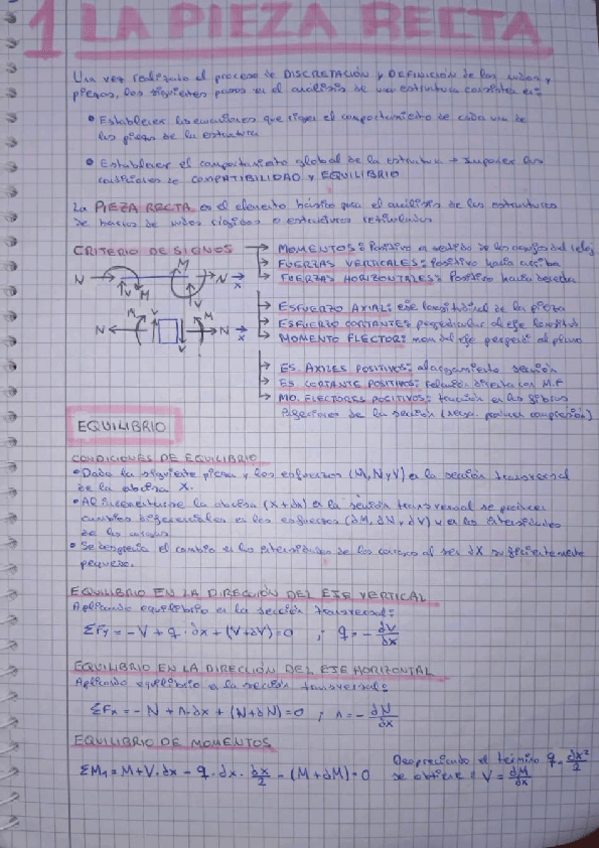 1 LA PIEZA RECTA
Una vez realizado el proceso de DISCRETACIÓN y DEFINICIÓN de los nudos y
piezas, los siguientes pasos en el análisis de una estructura consisten en:
• Establecer las ecuaciones que rigen el comportamiento de cada una de
las piezas de la estructura
• Establecer el comportamiento global de la estructura → Imponer las
condiciones de COMPATIBILIDAD y EQUILIBRIO
La PIEZA RECTA es el elemento básico para el análisis de las estructuras
de barras de nudos rígidos o estructuras reticuladas
CRITERIO DE SIGNOS
→ MOMENTOS: Positivo en sentido de las agujas del reloj
→ FUERZAS VERTICALES: Positivo hacia arriba
→ FUERZAS HORIZONTALES: Positivo hacia derecha
N V M M V N x
N M V V M N x
→ ESFUERZO AXIAL: eje longitudinal de la pieza
→ ESFUERZO CORTANTE: perpendicular al eje
→ MOMENTO FLECTOR: mom del eje al plano
→ ES. AXILES POSITIVOS: alargamiento sección
→ ES. CORTANTE POSITIVOS: relación directa con M.F
→ MO. FLECTORES POSITIVOS: tracción en las fibras
inferiores de la sección (producen compresión)
EQUILIBRIO
CONDICIONES DE EQUILIBRIO
• Dada la siguiente pieza y los esfuerzos (M, N y V) en la sección transversal
de la abscisa X.
• Al incrementarse la abscisa (x+dx) en la sección transversal se producen
cambios diferenciales en los esfuerzos (dM, dN y dV) y en las intensidades
de las cargas
• Se desprecia el cambio en las intensidades de las cargas al ser dX suficientemente
pequeño.
EQUILIBRIO EN LA DIRECCIÓN DEL EJE VERTICAL
Aplicando equilibrio en la sección transversal:
ΣFy = -V + q·dx + (V+dV) = 0 ; q = - dV/dx
EQUILIBRIO EN LA DIRECCIÓN DEL EJE HORIZONTAL
Aplicando equilibrio en la sección transversal:
ΣFx = - N + n·dx + (N+dN) = 0 ; n = - dN/dx
EQUILIBRIO DE MOMENTOS
ΣM₁ = M + V·dx - q·dx·dx/2 - (M+dM) = 0
Despreciando el término q·dx²/2
se obtiene: V = dM/dx